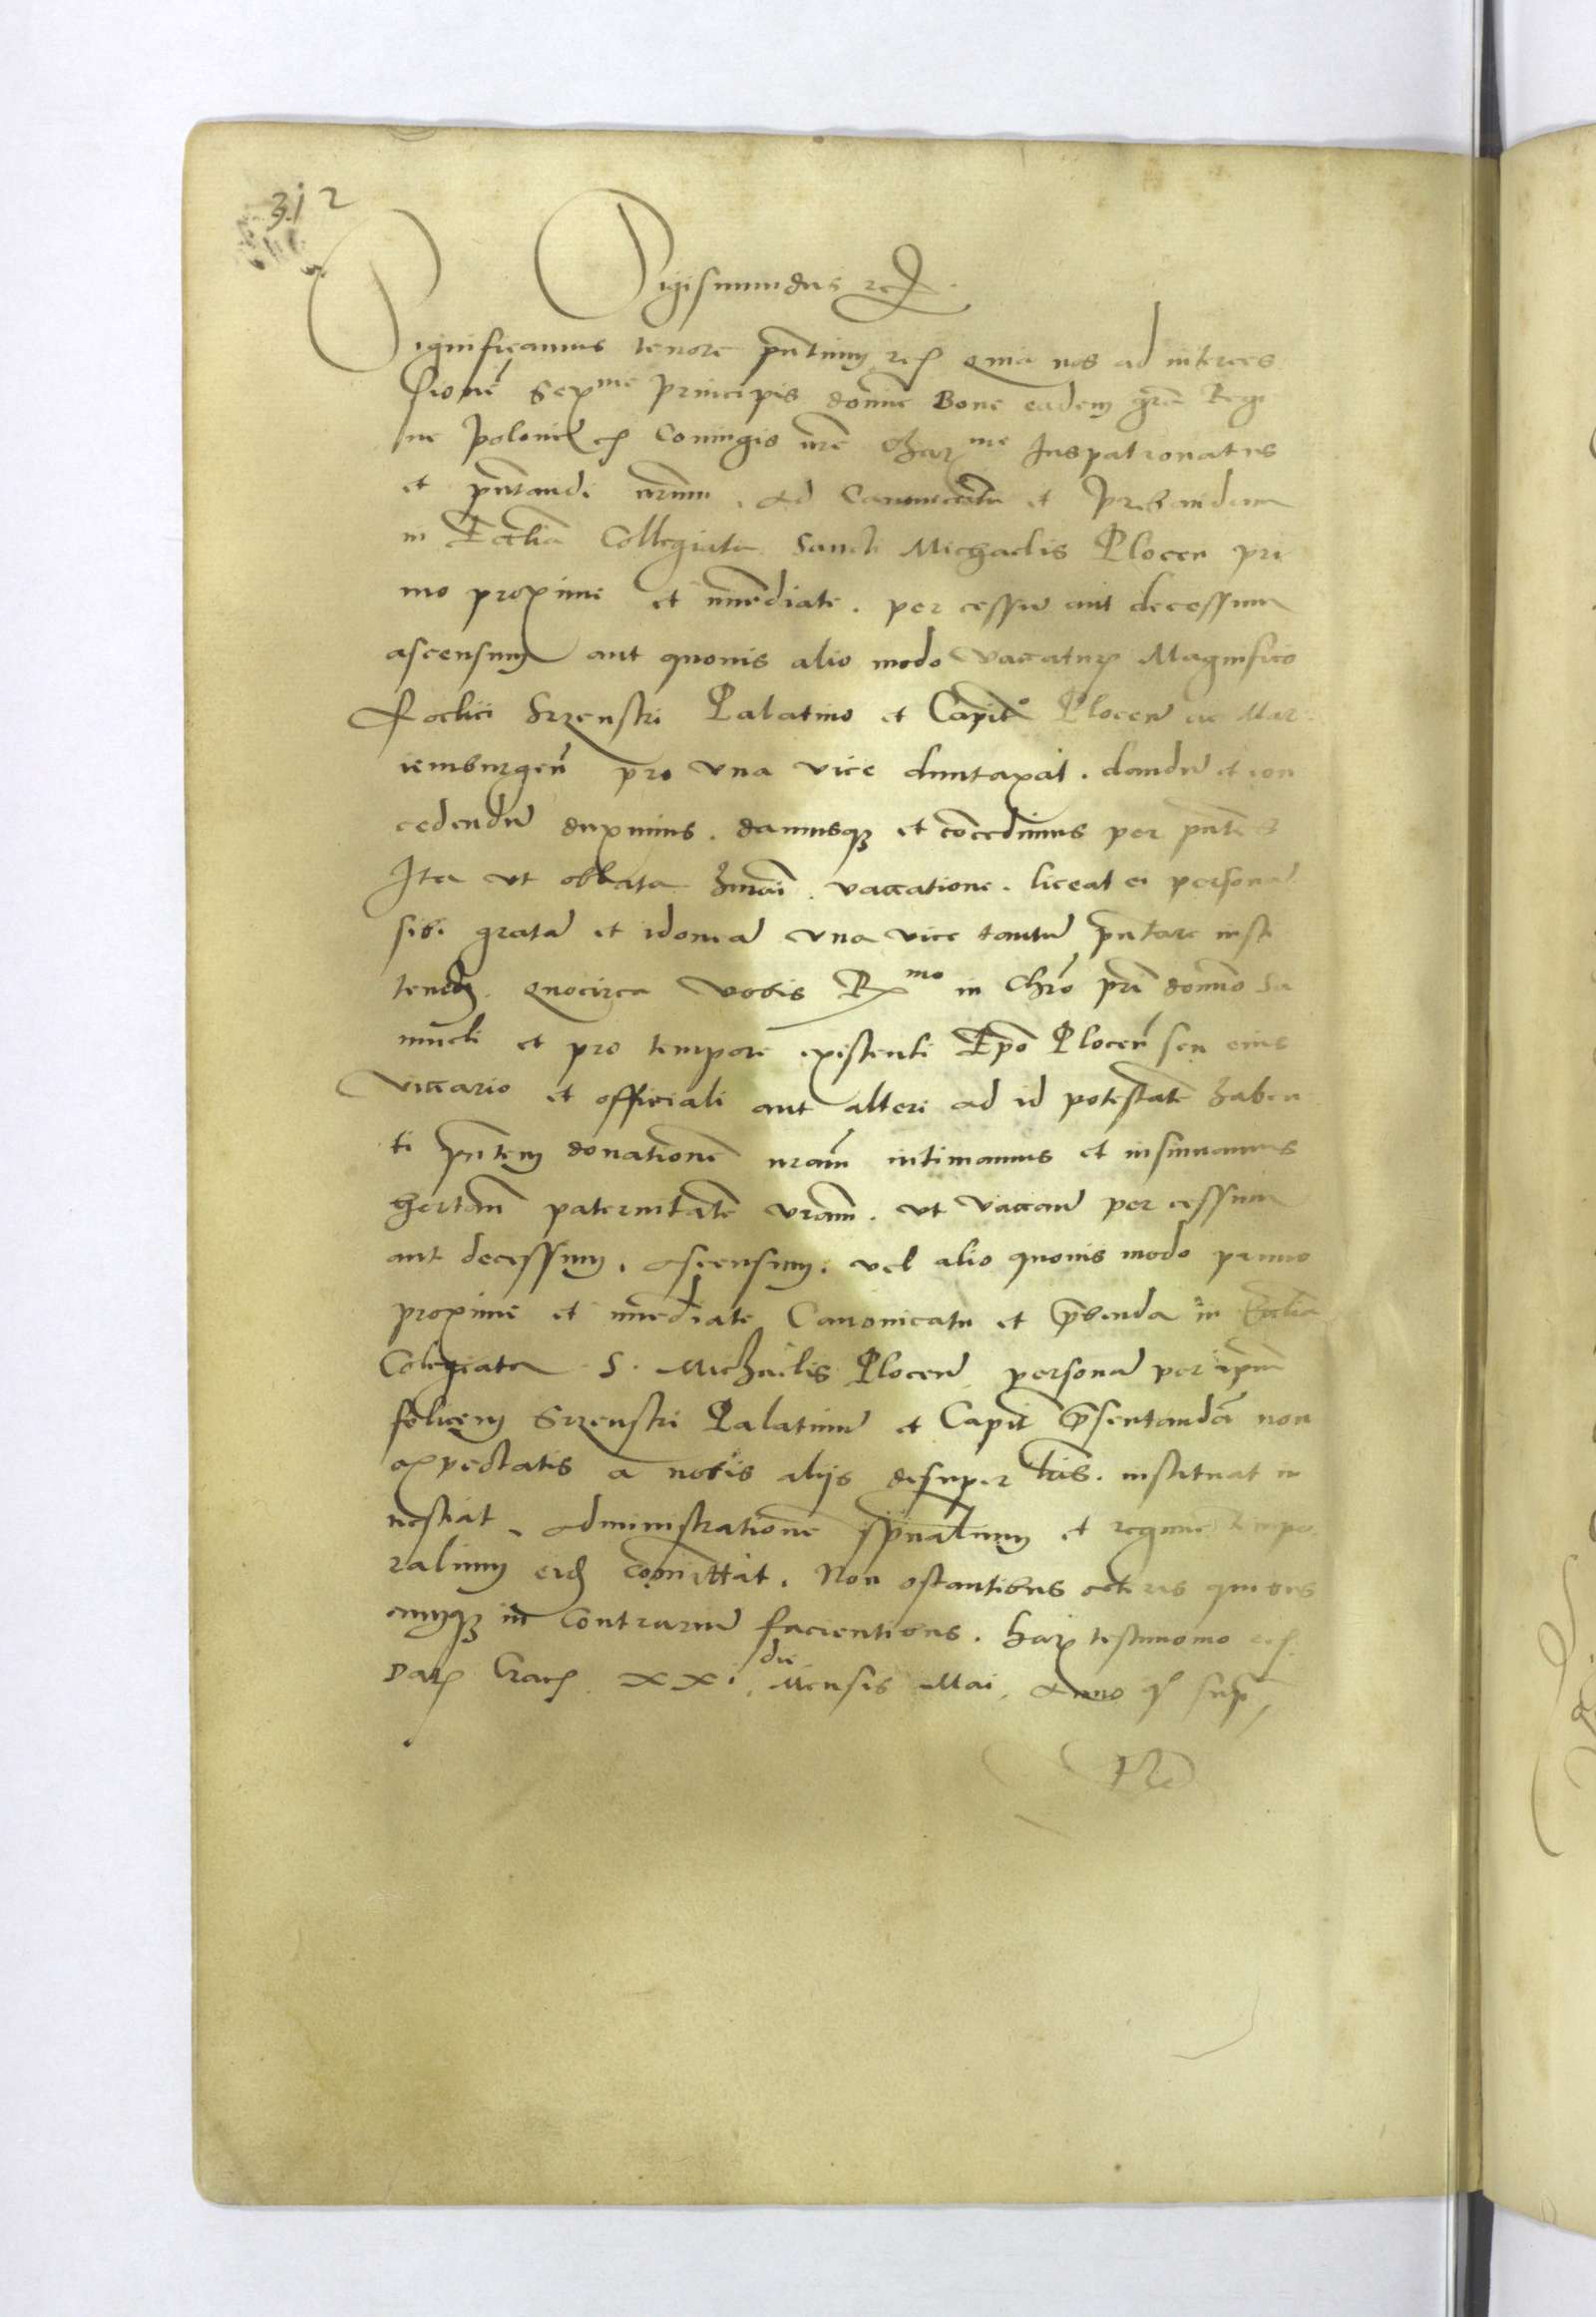 312
Sigismundus rex
Significamus tenore pñtium rc̃ quia nos ad interces
sionē Serᵐᵉ Principis domine Bone eadem grã Regi
ne Polonie rc̃ Coniugis nr̃e Charᵐᵉ Iuspatronatus
et pñtandi nr̃um, ad Canonicatū et Prebendam
in Ecclia Collegiata Sancti Michaelis Plocen pri
mo proxime et immediate . per cessū aut decessum
ascensum aut quovis alio modo vaccatur̃ Magnifico
Foelici Srzenski Palatino et Capitº Plocen̄ ac Mar
iemburgen̄ pro una vice duntaxat . dandū et con
cedendū duximus . damusqʒ et concedimus per pñtes
Ita ut oblata hmōi . vaccatione . liceat ei personā
sibi gratā et idoneā una vice tantū pñtare insti
tuendā. Quocirca vobis Rᵐᵒ in Chrō pri domino Sa
mueli et pro tempore existenti Epō Plocen̄ seu eius
viccario et officiali aut alteri ad id potestatē haben
ti pñtem donationē nr̃am intimamus et insinuamus
hortam̄ paternitatē vr̃am . ut vaccan̄ per cessum
aut decessum . ascensum . vel alio quovis modo primo
proxime et immediate Canonicatu et p̄benda in Ecclia
Colegiata S. Michaelis Plocen̄ personā per ipm̄
felicem Srzenski Palatinū et Capit p̄sentandā non
expectatis a nobis alijs desuper l̄ris . instituat in
vestiat . administrationē sp̄ualium et regimē tempo
ralium eidē com̄ittat . Non ostantibus ceteris quibus
cumqʒ in contrariū facientibus . har̃ testimonio rc̃.
Dat̃ Crac̃ XXI die Mensis Mai, Anno q̃ sup̃